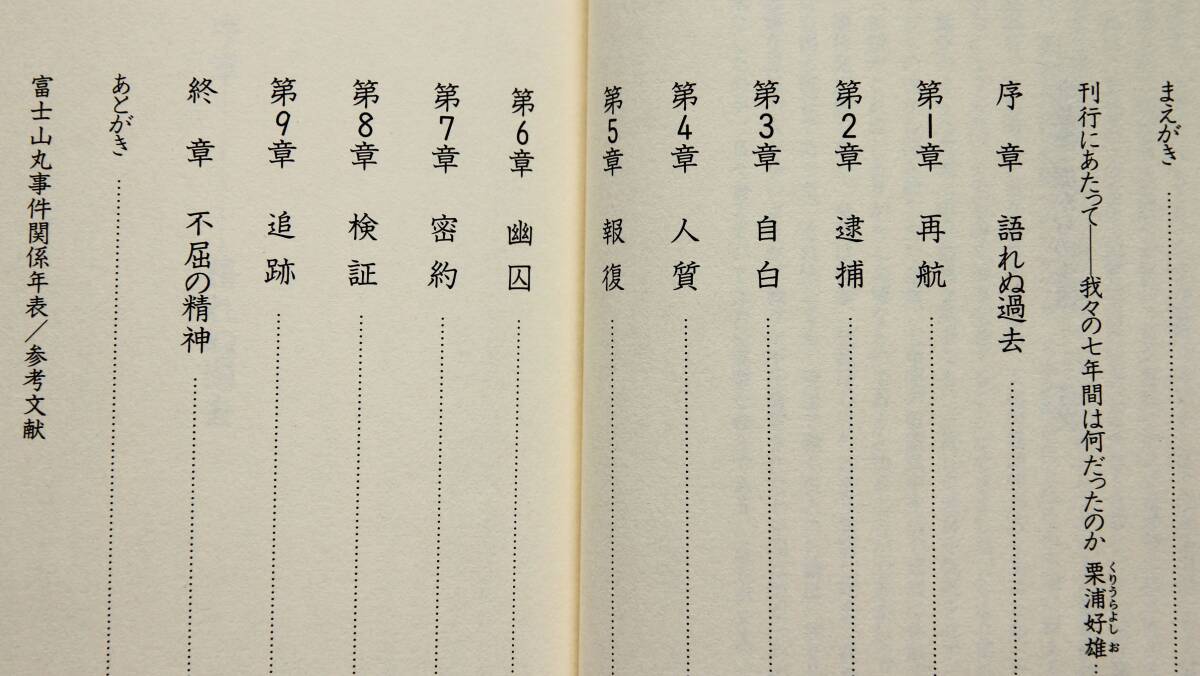 まえがき
刊行にあたって──我々の七年間は何だったのか 栗浦好雄
くりうらよしお
序章 語れぬ過去
第1章 再航
第2章 逮捕
第3章 自白
第4章 人質
第5章 報復
第6章 幽囚
第7章 密約
第8章 検証
第9章 追跡
終章 不屈の精神
あとがき
富士山丸事件関係年表／参考文献